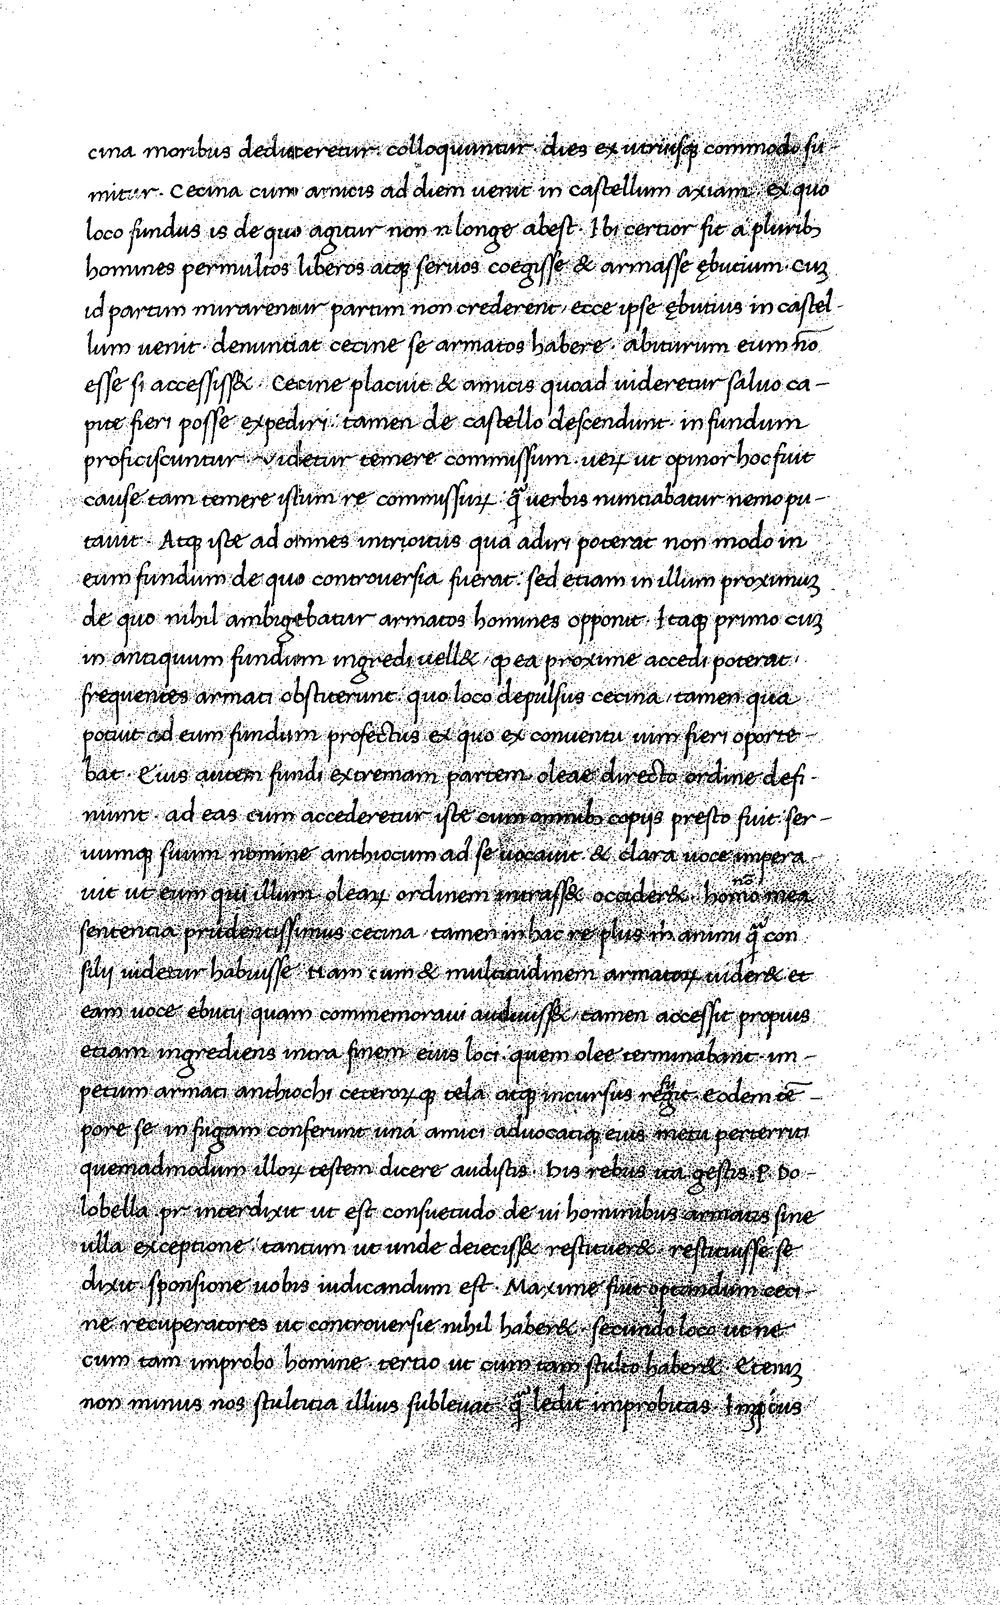 cina moribus deduceretur. colloquuntur. dies ex utriusq; commodo su-
mitur. Cecina cum amicis ad diem uenit in castellum axiam. ex quo
loco fundus is de quo agitur non n longe abest. Ibi certior fit a plurib;
homines permultos liberos atq; seruos coegisse & armasse ębutium. cuʒ
id partim mirarentur partim non crederent, ecce ipse ębutius in castel-
lum uenit. denuntiat cecine se armatos habere. abiturum eum nō
esse si accessiss&. Cecine placuit & amicis quoad uideretur saluo ca-
pite fieri posse expediri. tamen de castello descendunt. in fundum
proficiscuntur. Videtur temere commissum. ueꝝ ut opinor hoc fuit
cause. tam temere istum re commissuꝝ q̄ uerbis nuntiabatur nemo pu-
tauit. Atq; iste ad omnes introitus qua adiri poterat non modo in
eum fundum de quo controuersia fuerat. sed etiam in illum proximuʒ
de quo nihil ambigebatur armatos homines opponit. Itaq; primo cuʒ
in antiquum fundum ingredi uell& ꝙ ea proxime accedi poterat,
frequentes armati obstiterunt. quo loco depulsus cecina, tamen qua
potuit ad eum fundum profectus ex quo ex conuentu uim fieri oporte-
bat. Eius autem fundi extremam partem oleae directo ordine defi-
niunt. ad eas cum accederetur iste cum omnib; copijs presto fuit. ser-
uumq; suum nomine anthiocum ad se uocauit. & clara uoce impera
uit ut eum qui illum oleaꝝ ordinem intrass& occider&. homo nō mea
sententia prudentissimus cecina, tamen in hac re plus m̄ animi q̄ con
silij uidetur habuisse. Nam cum & multitudinem armatoꝝ uider& et
eam uoce ebutij quam commemoraui audiuiss&, tamen accessit propius
etiam ingrediens intra finem eius loci. quem olee terminabant. im-
petum armati anthiochi ceteroꝝq; tela atq; incursus refugit. Eodem tē-
pore se in fugam conferunt una amici aduocatiq; eius metu perterriti
quemadmodum illoꝝ testem dicere audistis. His rebus ita gestis. P. Do-
lobella. pr. interdixit ut est consuetudo de ui hominibus armatis sine
ulla exceptione. tantum ut unde deieciss& restituer&. restituisse se
dixit. sponsione uobis iudicandum est. Maxime fuit optandum ceci-
ne recuperatores ut controuersie nihil haber&. secundo loco ut ne
cum tam improbo homine. tertio ut cum tam stulto haber&. Etenʒ
non minus nos stultitia illius subleuat. q̄ ledit improbitas.